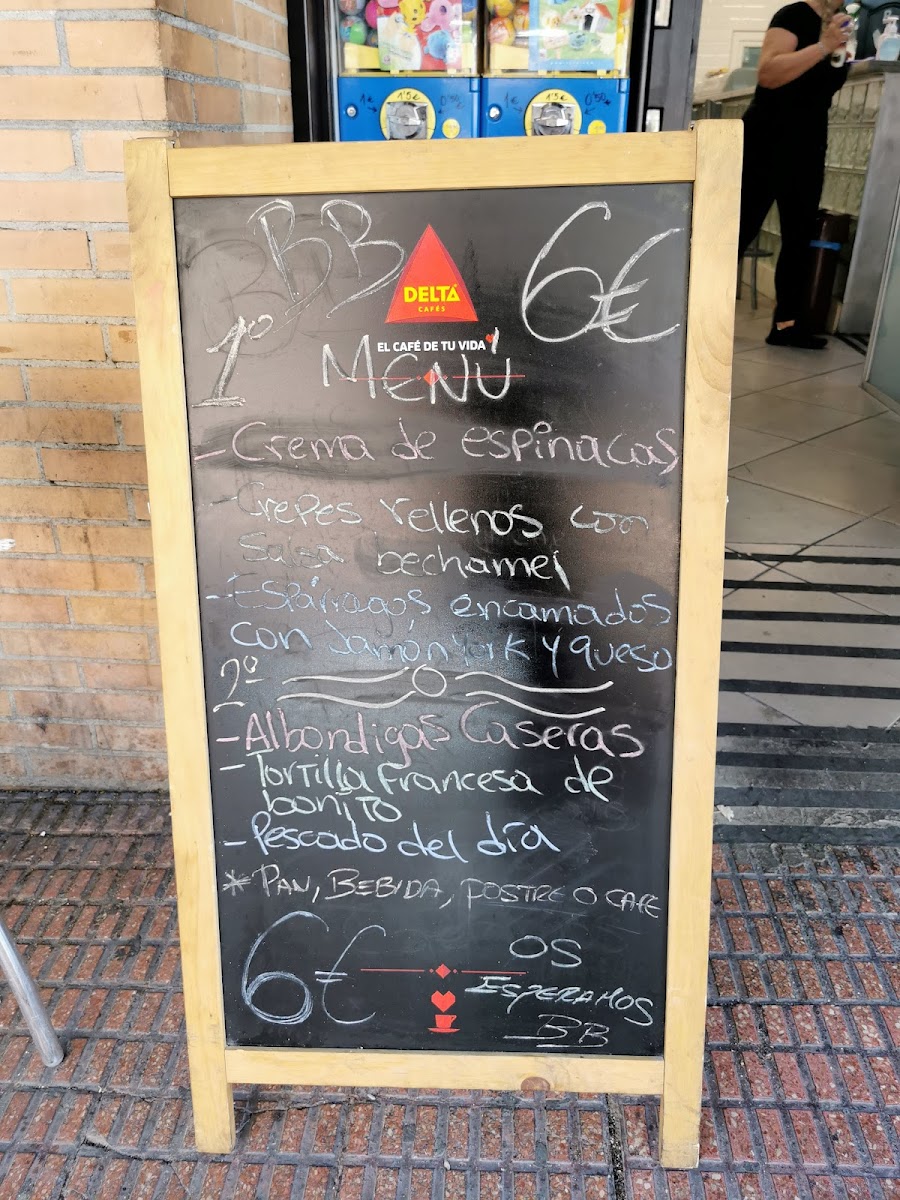 1€ 1'5€ 0'50
1€ 1'5€ 0'50
BB
6€
DELTA
CAFÉS
EL CAFÉ DE TU VIDA
1º
MENÚ
- Crema de espinacas
- Crepes rellenos con
salsa bechamel
- Espárragos encamados
con Jamón York y queso
2º
- Albondigas Caseras
- Tortilla Francesa de
bonito
- Pescado del día
* PAN, BEBIDA, POSTRE O CAFE
6€
OS
ESPERAMOS
BB